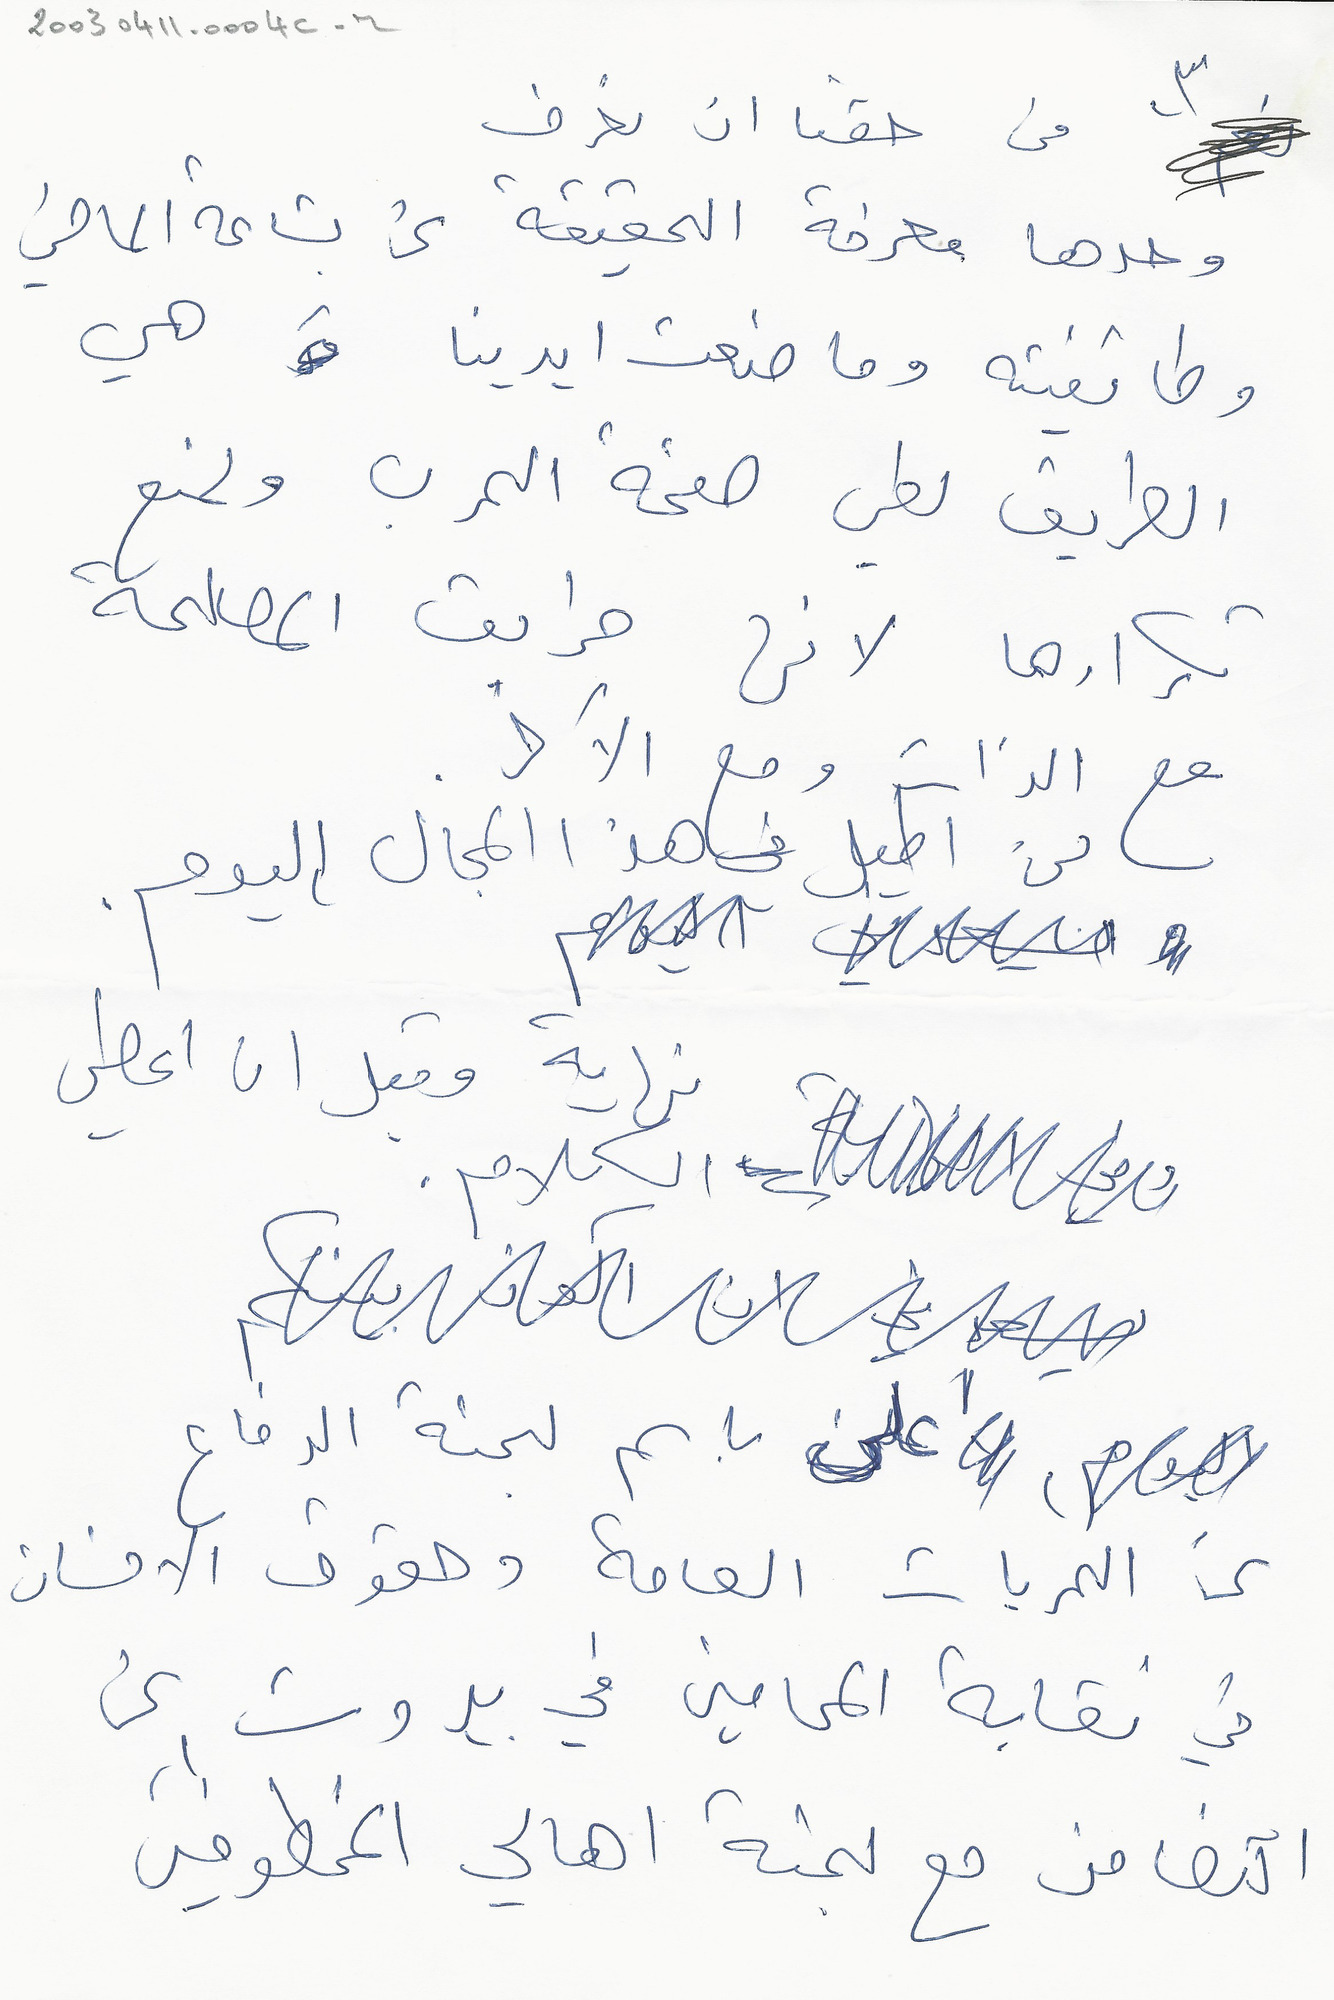 20030411.0004c-r
٣
من حقنا ان نعرف
وحدها معرفة الحقيقة عن بشاعة الماضي
وطائفيته وما صنعت ايدينا هي
الطريق لطي صفحة الحرب ولمنع
تكرارها لانها طريق المصالحة
مع الذات ومع الآخر.
لن اطيل في هذا المجال اليوم.
نهاية وقبل ان اعطي
الكلام.
اعلن باسم لجنة الدفاع
عن الحريات العامة وحقوق الانسان
في نقابة المحامين في بيروت عن
التضامن مع لجنة اهالي المخطوفين